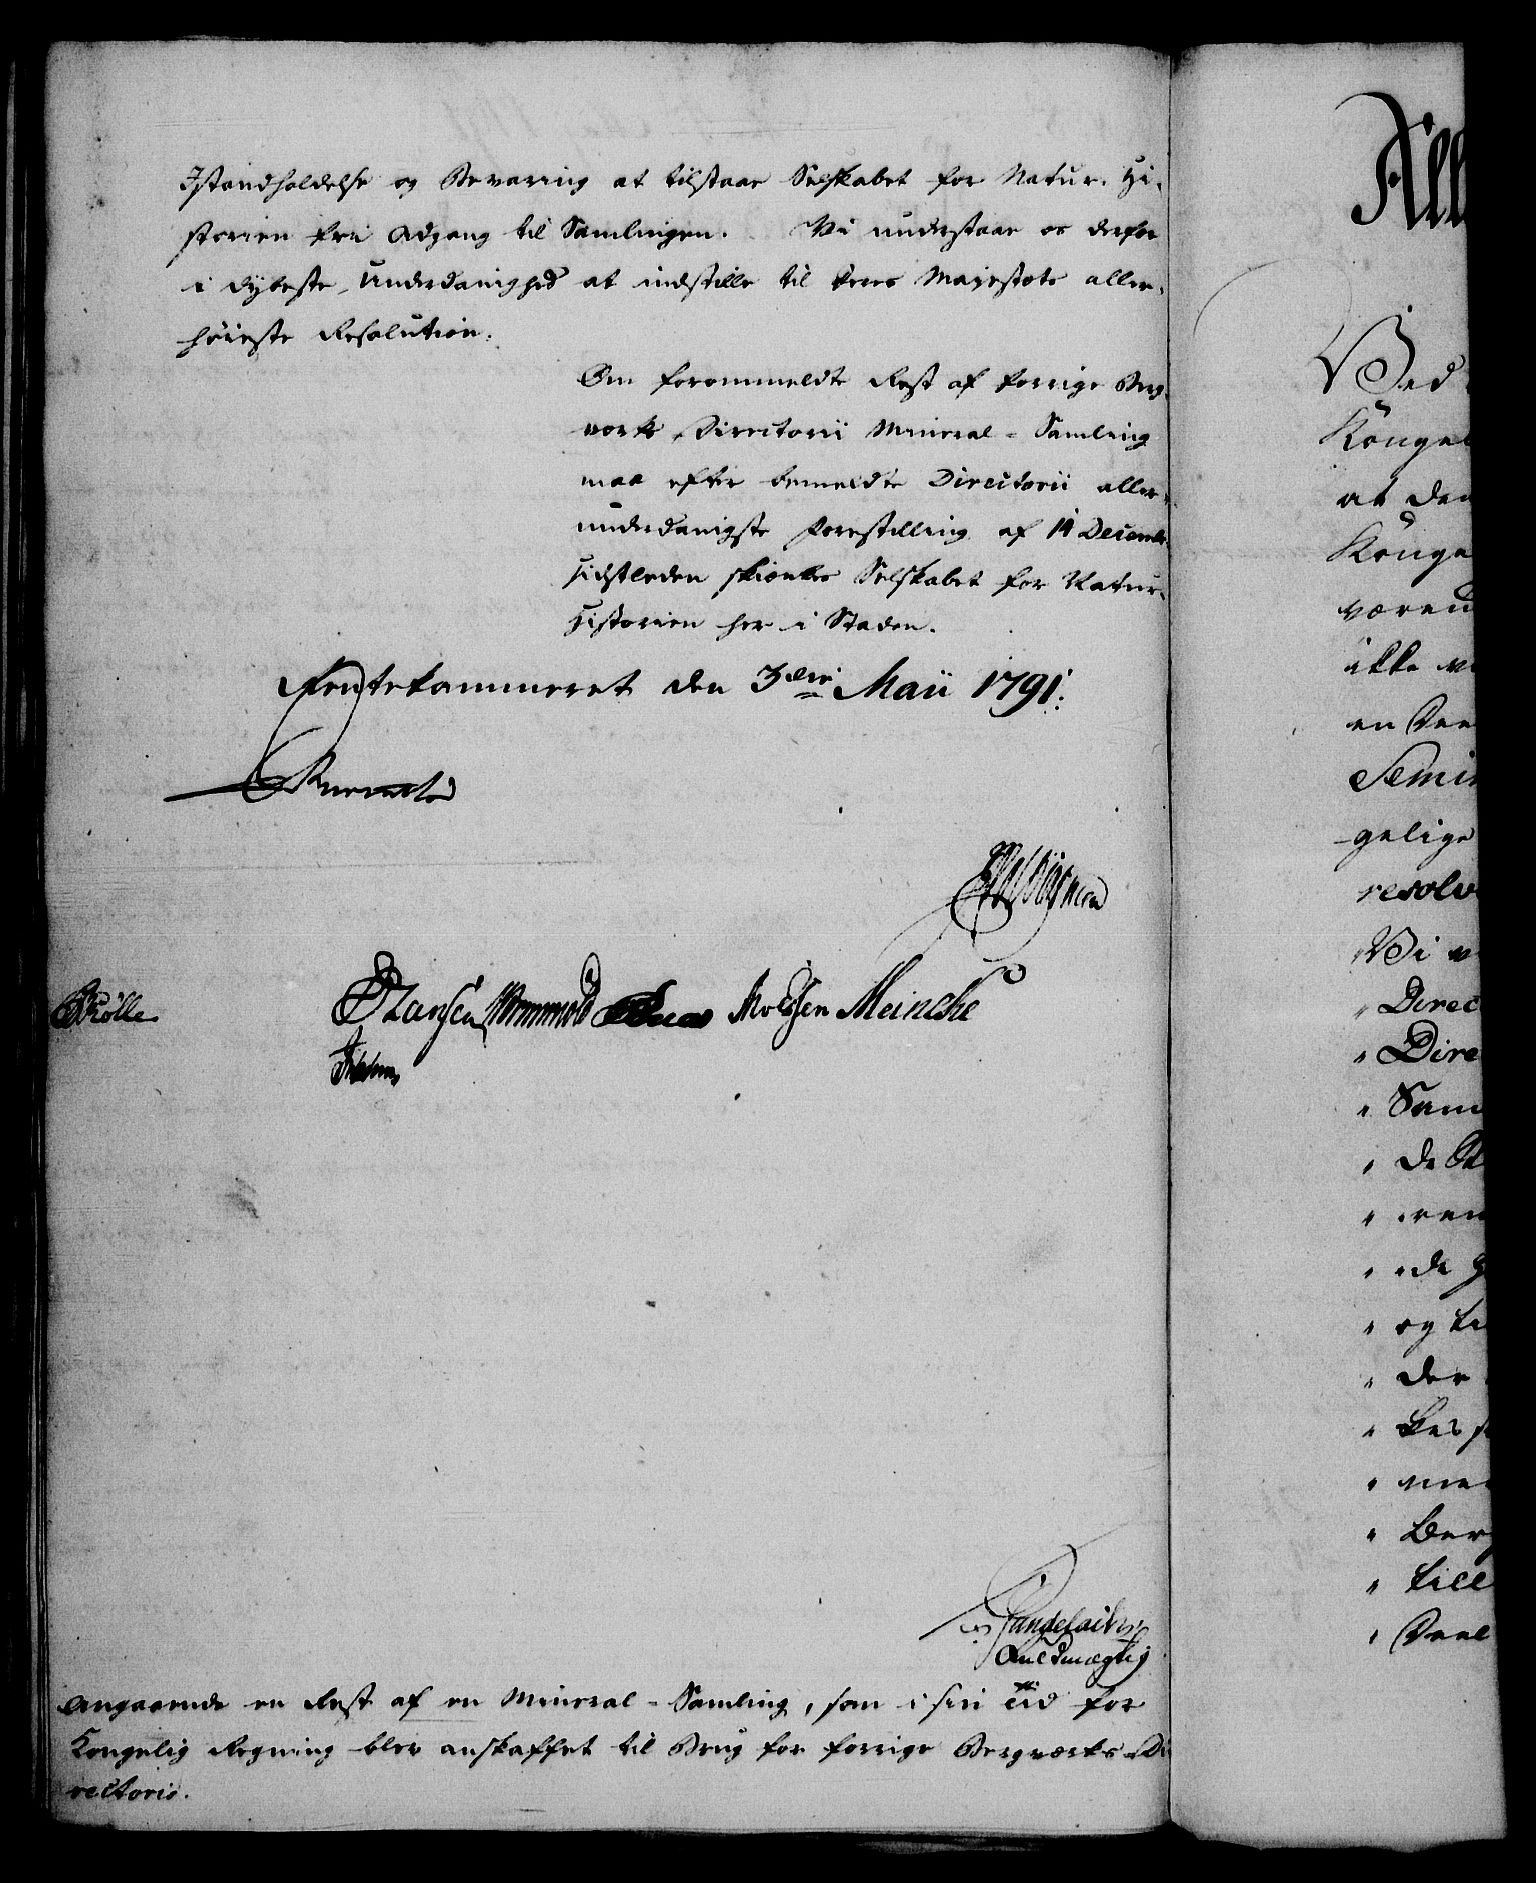 Istandholdelse og Bevaring at tilstaae Selskabet for Natur-Hi-
storien frie Adgang til Samlingen. Vi understaae os derfor
i dybeste Underdanighed at indstille til Deres Majestæts aller-
høieste Resolution.
Om forommeldte Rest af forrige Berg-
verks Directorii Mineral-Samling
maa efter bemeldte Directorii aller-
underdanigste Forestilling af 14 December
sidstleden skienkes Selskabet for Natur-
Historien her i Staden.
Rentekammeret den 3die Maii 1791.
Hansen Wormskiold Meincke
Fuldmægtig
Angaaende en Rest af en Mineral-Samling, som i sin Tid for
Kongelig Regning blev anskaffet til Brug for forrige Bergverks-Di
rectorio.
All
Ved
Kongel
at den
Konge
væren
ikke
en Dee
Semin
gelige
resolv
"Vi v
" Direc
" Dire
" Sam
" de
" ren
" de
" og ti
" der
" kes
" me
" Berg
" till
" Deel